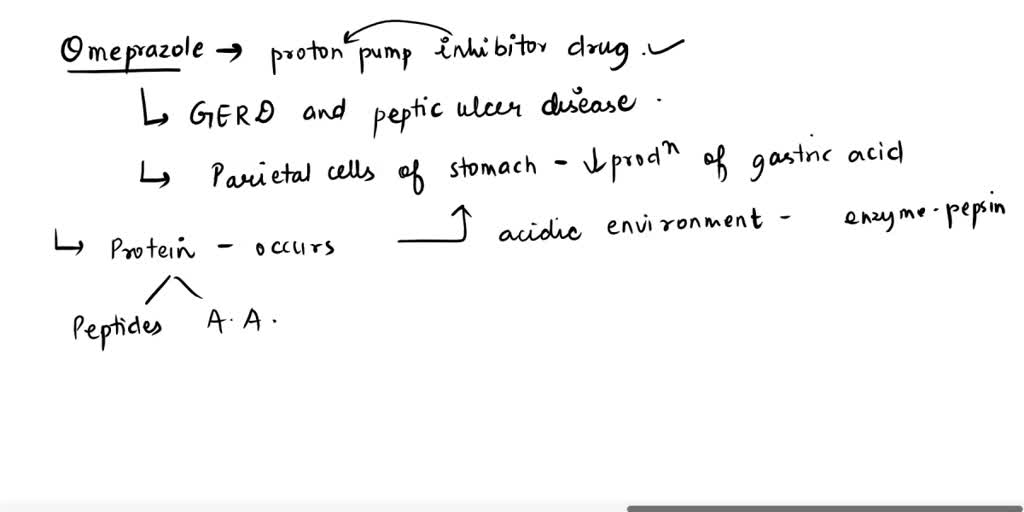 Omeprazole → proton pump inhibitor drug. ✓
↳ GERD and peptic ulcer disease.
↳ Parietal cells of stomach - ↓ prodⁿ of gastric acid
↳ Protein - occurs acidic environment - enzyme - pepsin
Peptides A.A.